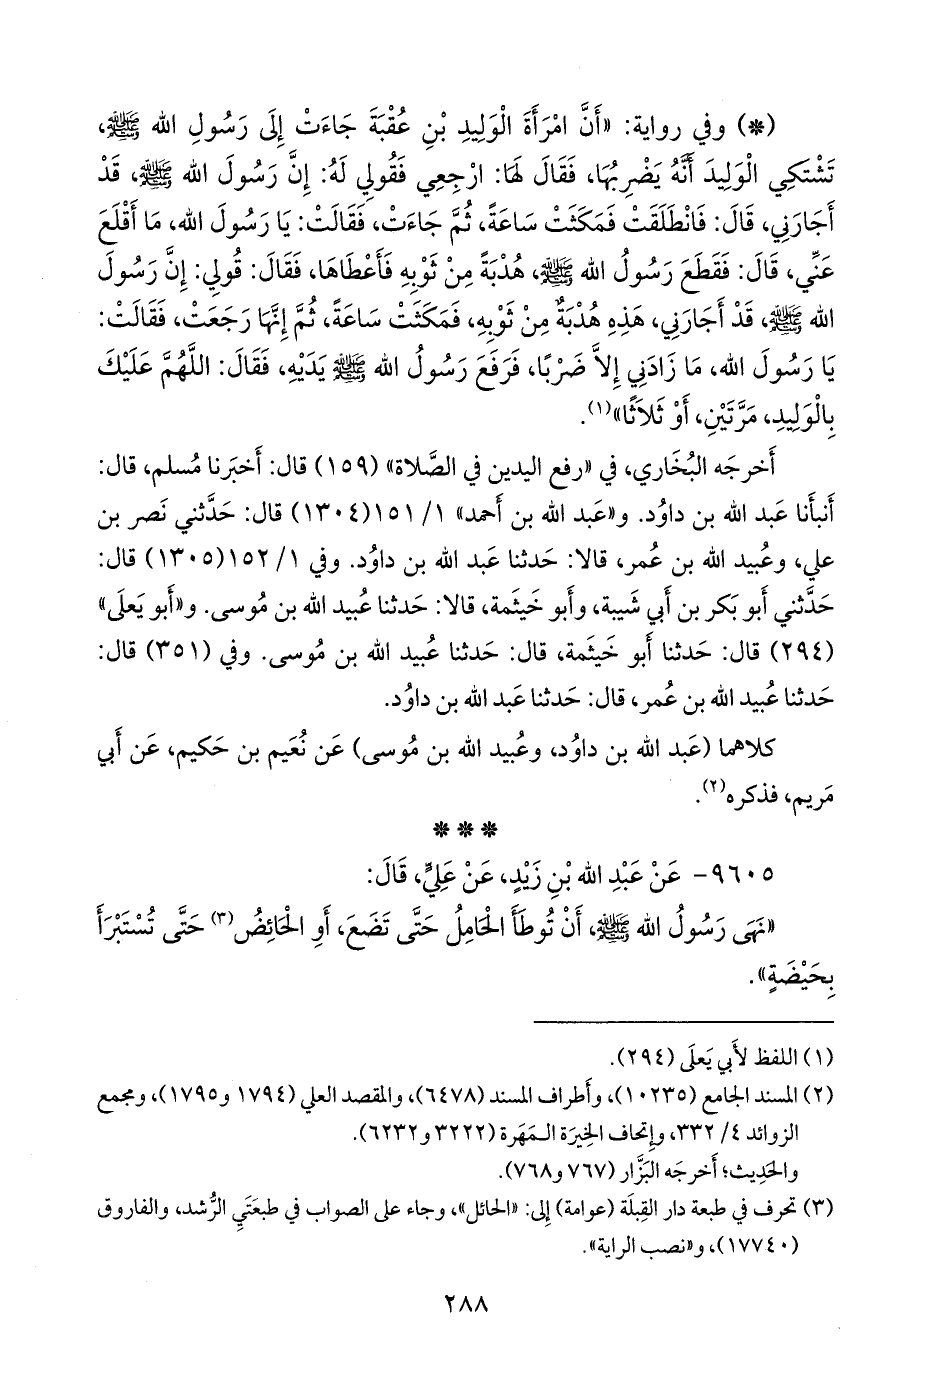 (*) وفي رواية: «أَنَّ امْرَأَةَ الْوَلِيدِ بْنِ عُقْبَةَ جَاءَتْ إِلَى رَسُولِ الله ﷺ،
تَشْتَكِي الْوَلِيدَ أَنَّهُ يَضْرِبُهَا، فَقَالَ لَهَا: ارْجِعِي فَقُولِي لَهُ: إِنَّ رَسُولَ الله ﷺ، قَدْ
أَجَارَنِي، قَالَ: فَانْطَلَقَتْ فَمَكَثَتْ سَاعَةً، ثُمَّ جَاءَتْ، فَقَالَتْ: يَا رَسُولَ الله، مَا أَقْلَعَ
عَنِّي، قَالَ: فَقَطَعَ رَسُولُ الله ﷺ، هُدْبَةً مِنْ ثَوْبِهِ فَأَعْطَاهَا، فَقَالَ: قُولِي: إِنَّ رَسُولَ
الله ﷺ، قَدْ أَجَارَنِي، هَذِهِ هُدْبَةٌ مِنْ ثَوْبِهِ، فَمَكَثَتْ سَاعَةً، ثُمَّ إِنَّهَا رَجَعَتْ، فَقَالَتْ:
يَا رَسُولَ الله، مَا زَادَنِي إِلاَّ ضَرْبًا، فَرَفَعَ رَسُولُ الله ﷺ يَدَيْهِ، فَقَالَ: اللَّهُمَّ عَلَيْكَ
بِالْوَلِيدِ، مَرَّتَيْنِ، أَوْ ثَلاَثًا»(١).
أَخرجَه البُخاري، في «رفع اليدين في الصَّلاة» (١٥٩) قال: أَخبَرنا مُسلم، قال:
أَنبأَنا عَبد الله بن داوُد. و«عَبد الله بن أَحمد» ١/ ١٥١(١٣٠٤) قال: حَدَّثني نَصر بن
علي، وعُبيد الله بن عُمر، قالا: حَدثنا عَبد الله بن داوُد. وفي ١/ ١٥٢(١٣٠٥) قال:
حَدَّثني أَبو بَكر بن أَبي شَيبة، وأَبو خَيثَمة، قالا: حَدثنا عُبيد الله بن مُوسى. و«أَبو يَعلَى»
(٢٩٤) قال: حَدثنا أَبو خَيثَمة، قال: حَدثنا عُبيد الله بن مُوسى. وفي (٣٥١) قال:
حَدثنا عُبيد الله بن عُمر، قال: حَدثنا عَبد الله بن داوُد.
كلاهما (عَبد الله بن داوُد، وعُبيد الله بن مُوسى) عَن نُعَيم بن حَكيم، عَن أَبي
مَريم، فذكره(٢).
* * *
٩٦٠٥- عَنْ عَبْدِ الله بْنِ زَيْدٍ، عَنْ عَلِيٍّ، قَالَ:
«نَهَى رَسُولُ الله ﷺ، أَنْ تُوطَأَ الْحَامِلُ حَتَّى تَضَعَ، أَوِ الْحَائِضُ(٣) حَتَّى تُسْتَبْرَأَ
بِحَيْضَةٍ».
(١) اللفظ لأَبي يَعلَى (٢٩٤).
(٢) المسند الجامع (١٠٢٣٥)، وأَطراف المسند (٦٤٧٨)، والمقصد العلي (١٧٩٤ و١٧٩٥)، ومجمع
الزوائد ٤/ ٣٣٢، وإتحاف الخِيرَة الـمَهَرة (٣٢٢٢ و٦٢٣٢).
والحَدِيث؛ أَخرجَه البَزَّار (٧٦٧ و٧٦٨).
(٣) تحرف في طبعة دار القِبلَة (عوامة) إِلى: «الحائل»، وجاء على الصواب في طبعَتَيِ الرُّشد، والفاروق
(١٧٧٤٠)، و«نصب الراية».
٢٨٨